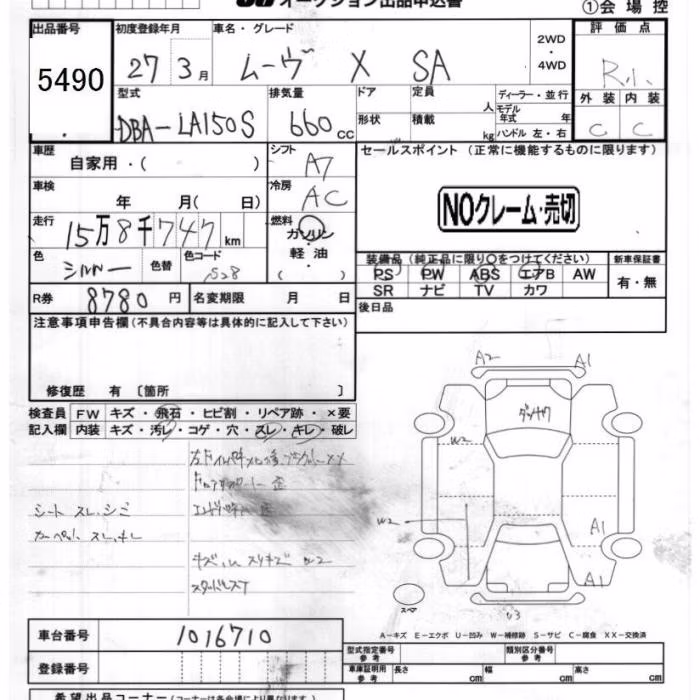 オークション出品申込書
①会場控
出品番号 初度登録年月 車名・グレード 評価点
5490 27年 3月 ムーヴ X SA 2WD・4WD R.小.
型式 排気量 ドア 定員 ディーラー・並行 外装 内装
DBA-LA150S 660cc 形状 人 積載 kg モデル年式 年 ハンドル 左・右 C C
車歴 シフト セールスポイント(正常に機能するものに限ります)
自家用・( ) A7
車検 冷房 NOクレーム・売切
年 月( 日) AC
走行 燃料
15万8千747km ガソリン・軽油( )
色 色替 色コード 装備品(純正品に限り○をつけてください) 新車保証書
シルバー S28 PS PW ABS エアB AW 有・無
SR ナビ TV カワ
R券 8780円 名変期限 月 日 後日品
注意事項申告欄(不具合内容等は具体的に記入して下さい)
修復歴 有〔箇所 〕
検査員 FW キズ・飛石・ヒビ割・リペア跡・×要
記入欄 内装 キズ・汚レ・コゲ・穴・スレ・キレ・破レ
シート スレ、シミ
カーペット スレ、キレ
キズ、小スリキズ W2
スタッドレスT
A2 A1
W2
W2
A1
A1
U3
スペア
A-キズ E-エクボ U-凹み W-補修跡 S-サビ C-腐食 XX-交換済
車台番号 1016710
登録番号
型式指定番号 参考 類別区分番号 参考
車庫証明用 参考 長さ cm 幅 cm 高さ cm
希望出品コーナー(コーナーは各会場により異なります)